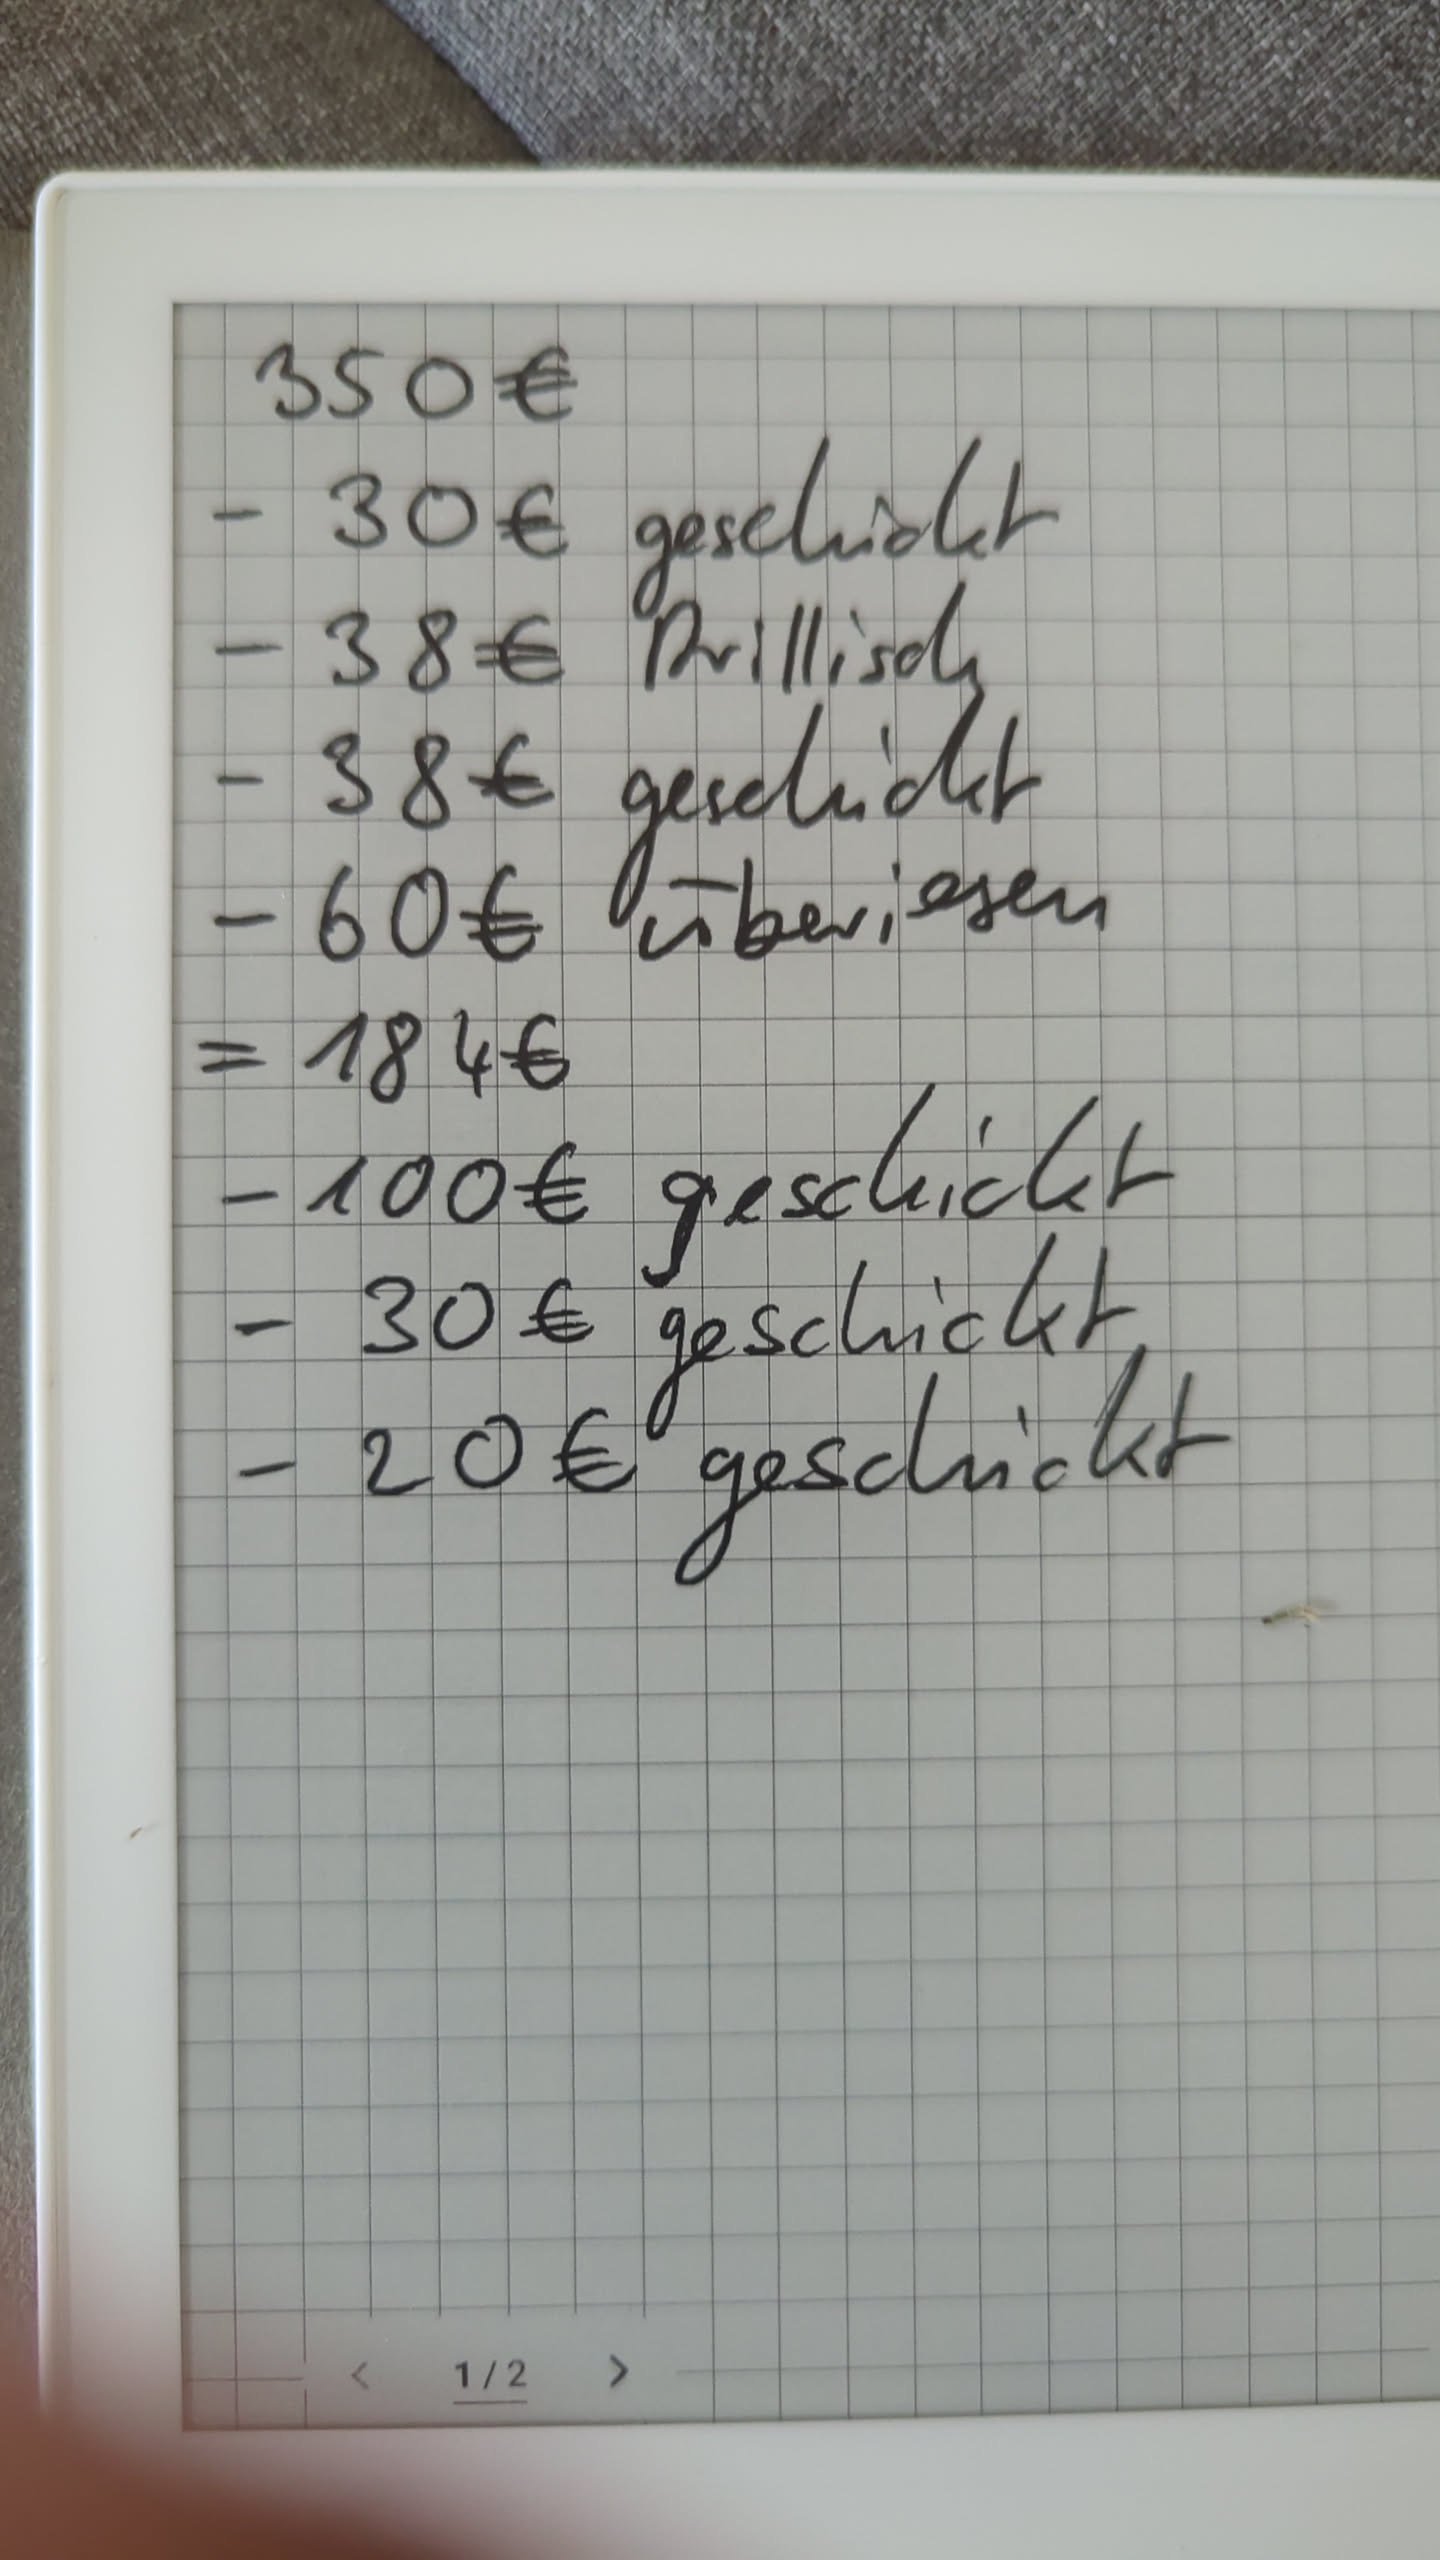 350€
- 30€ geschickt
- 38€ Drillisch
- 38€ geschickt
- 60€ überiesen
= 184€
- 100€ geschickt
- 30€ geschickt
- 20€ geschickt
< 1/2 >